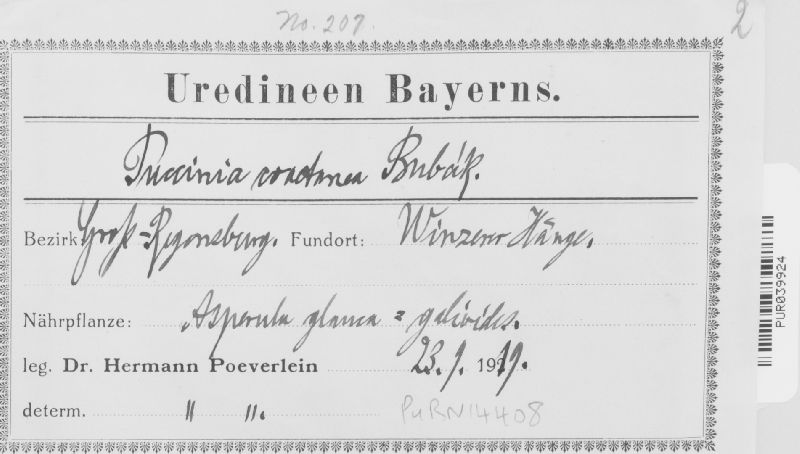 No. 207.
2
Uredineen Bayerns.
Puccinia Bubák.
Bezirk: Groß-Regensburg. Fundort: Winzerer Hänge.
Nährpflanze: Asperula glauca = galioides.
leg. Dr. Hermann Poeverlein 23. 9. 1919.
determ. " ".
PuRN14408
PUR039924